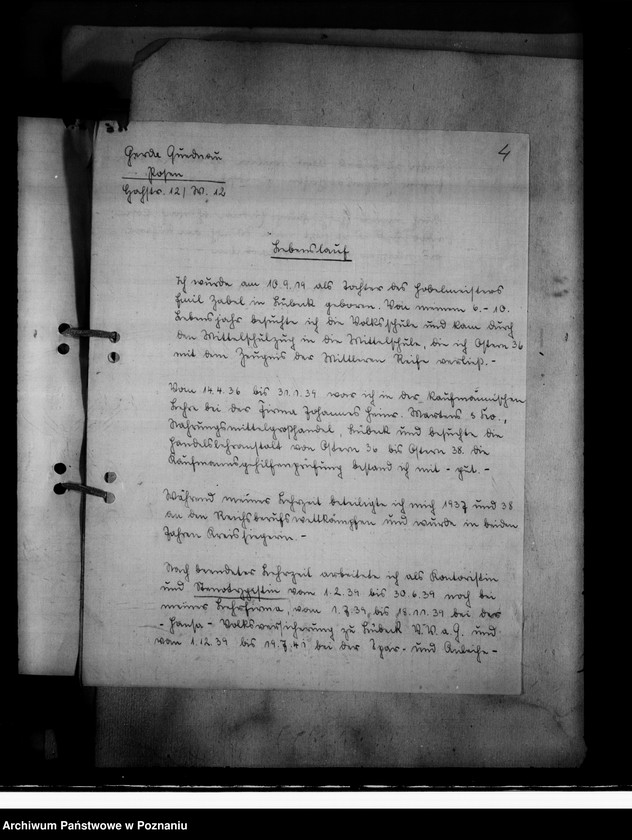 4
Gerda Guednau
Posen
str. 12 / W. 12
Lebenslauf
Ich wurde am 10.9.19 als Tochter des Hobelmeisters
Emil Zabel in Lübeck geboren. Von meinem 6. - 10.
Lebensjahr besuchte ich die Volksschule und kam durch
den Mittelschulzug in die Mittelschule, die ich Ostern 36
mit dem Zeugnis der Mittleren Reife verließ. -
Vom 14.4.36 bis 31.1.39 war ich in der kaufmännischen
Lehre bei der Firma Johannes Heinr. Martens & Co.,
Nahrungsmittelgroßhandel, Lübeck und besuchte die
Handelslehranstalt von Ostern 36 bis Ostern 38. die
Kaufmannsgehilfenprüfung bestand ich mit - gut. -
Während meiner Lehrzeit beteiligte ich mich 1937 und 38
an den Reichsberufswettkämpfen und wurde in beiden
Jahren Kreissiegerin. -
Nach beendeter Lehrzeit arbeitete ich als Kontoristin
und Stenotypistin vom 1.2.39 bis 30.6.39 noch bei
meiner Lehrfirma, vom 1.7.39 bis 18.11.39 bei der
- Hansa - Volksversicherung zu Lübeck V.V.a.G. und
vom 1.12.39 bis 19.7.41 bei der Spar- und Anleihe-
Archiwum Państwowe w Poznaniu